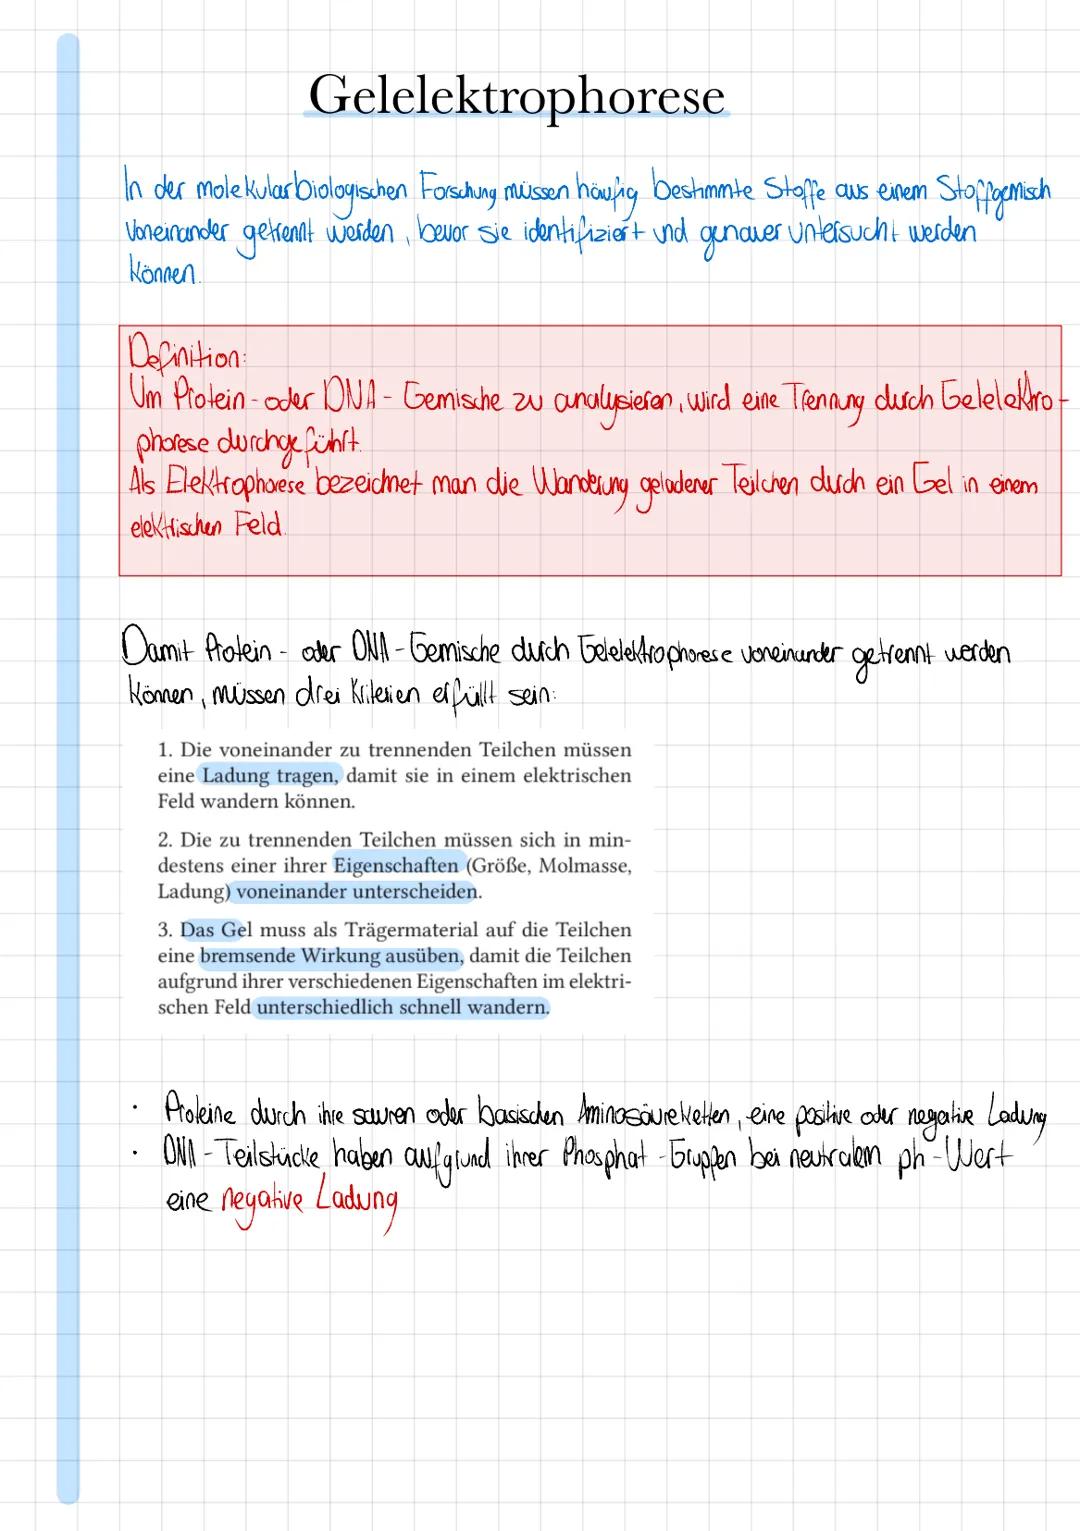 Gelelektrophorese
In der molekularbiologischen Forschung müssen häufig bestimmte Stoffe aus einem Stoffgemisch
voneinander getrennt werden, bevor sie identifiziert und genauer untersucht werden
können.
Definition:
Um Protein- oder DNA- Gemische zu analysieren, wird eine Trennung durch Gelelektro-
phorese durchgeführt.
Als Elektrophorese bezeichnet man die Wanderung geladener Teilchen durch ein Gel in einem
elektrischen Feld.
Damit Protein - oder DNA - Gemische durch Gelelektrophorese voneinander getrennt werden
können, müssen drei Kriterien erfüllt sein:
1. Die voneinander zu trennenden Teilchen müssen
eine Ladung tragen, damit sie in einem elektrischen
Feld wandern können.
2. Die zu trennenden Teilchen müssen sich in min-
destens einer ihrer Eigenschaften (Größe, Molmasse,
Ladung) voneinander unterscheiden.
3. Das Gel muss als Trägermaterial auf die Teilchen
eine bremsende Wirkung ausüben, damit die Teilchen
aufgrund ihrer verschiedenen Eigenschaften im elektri-
schen Feld unterschiedlich schnell wandern.
• Proteine durch ihre sauren oder basischen Aminosäureketten, eine positive oder negative Ladung
• DNA - Teilstücke haben aufgrund ihrer Phosphat - Gruppen bei neutralem ph - Wert
eine negative Ladung